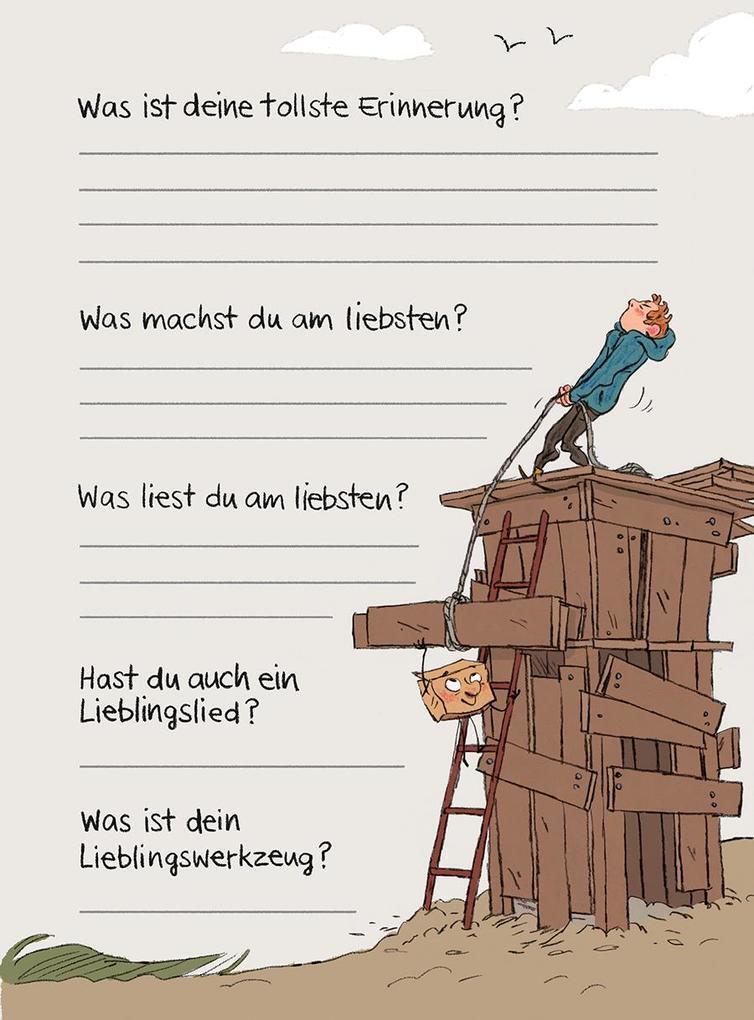 Was ist deine tollste Erinnerung?
Was machst du am liebsten?
Was liest du am liebsten?
Hast du auch ein
Lieblingslied?
Was ist dein
Lieblingswerkzeug?